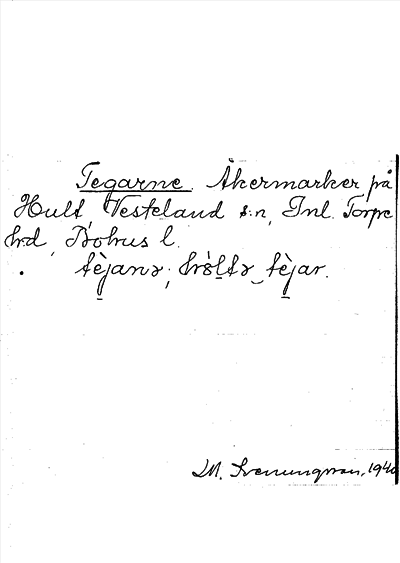 Tegarne. Åkermarker på
Hult, Vesteland s:n, Inl. Torpe
hrd, Bohus l.
tèjanə; tèjar.
M. Svenungsson, 1940